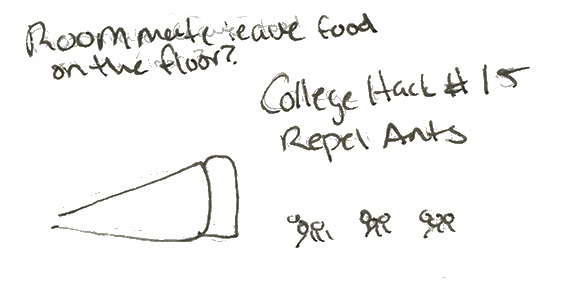 Roommate leave food
on the floor?
College Hack # 15
Repel Ants